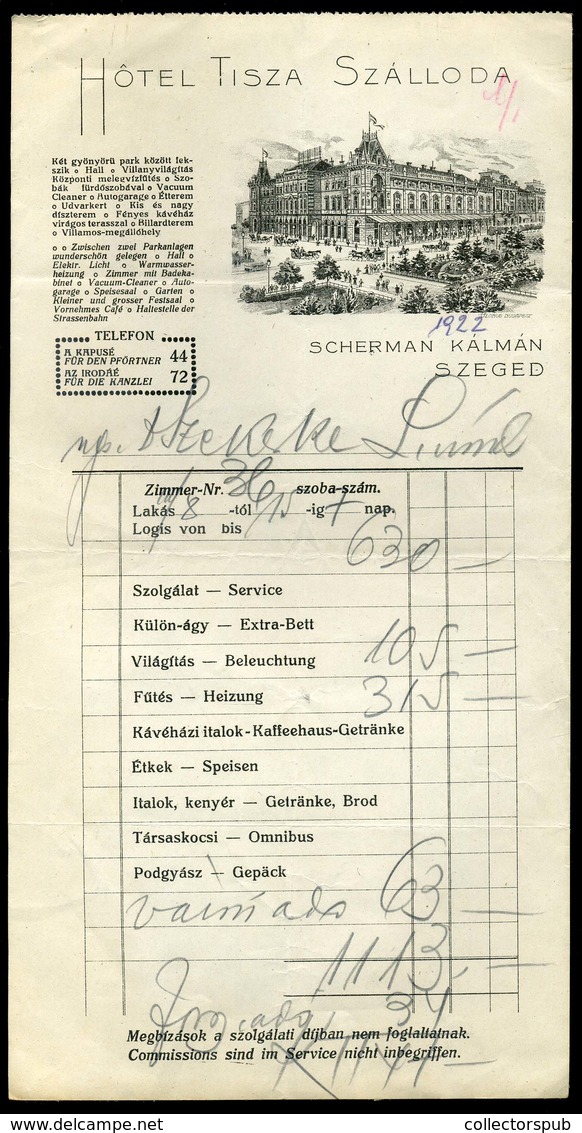 HÔTEL TISZA SZÁLLODA
Két gyönyörű park között fek-
szik o Hall o Villanyvilágítás
Központi melegvízfűtés o Szo-
bák fürdőszobával o Vacuum
Cleaner o Autogarage o Étterem
o Udvarkert o Kis és nagy
díszterem o Fényes kávéház
virágos terasszal o Billardterem
o Villamos-megállóhely
o o Zwischen zwei Parkanlagen
wunderschön gelegen o Hall o
Elektr. Licht o Warmwasser-
heizung o Zimmer mit Badeka-
binet o Vacuum-Cleaner o Auto-
garage o Speisesaal o Garten o
Kleiner und grosser Festsaal o
Vornehmes Café o Haltestelle der
Strassenbahn
TELEFON
A KAPUSÉ
FÜR DEN PFÖRTNER 44
AZ IRODÁÉ
FÜR DIE KANZLEI 72
1922
SCHERMAN KÁLMÁN
SZEGED
Zimmer-Nr. 36 szoba-szám.
Lakás 8 -tól 15 -ig 7 nap.
Logis von bis
630 —
Szolgálat — Service
Külön-ágy — Extra-Bett
Világítás — Beleuchtung 105 —
Fűtés — Heizung 315 —
Kávéházi italok - Kaffeehaus-Getränke
Étkek — Speisen
Italok, kenyér — Getränke, Brod
Társaskocsi — Omnibus
Podgyász — Gepäck
63 —
1113,—
34
Megbízások a szolgálati díjban nem foglaltatnak.
Commissions sind im Service nicht inbegriffen.
delcampe.net
collectorspub